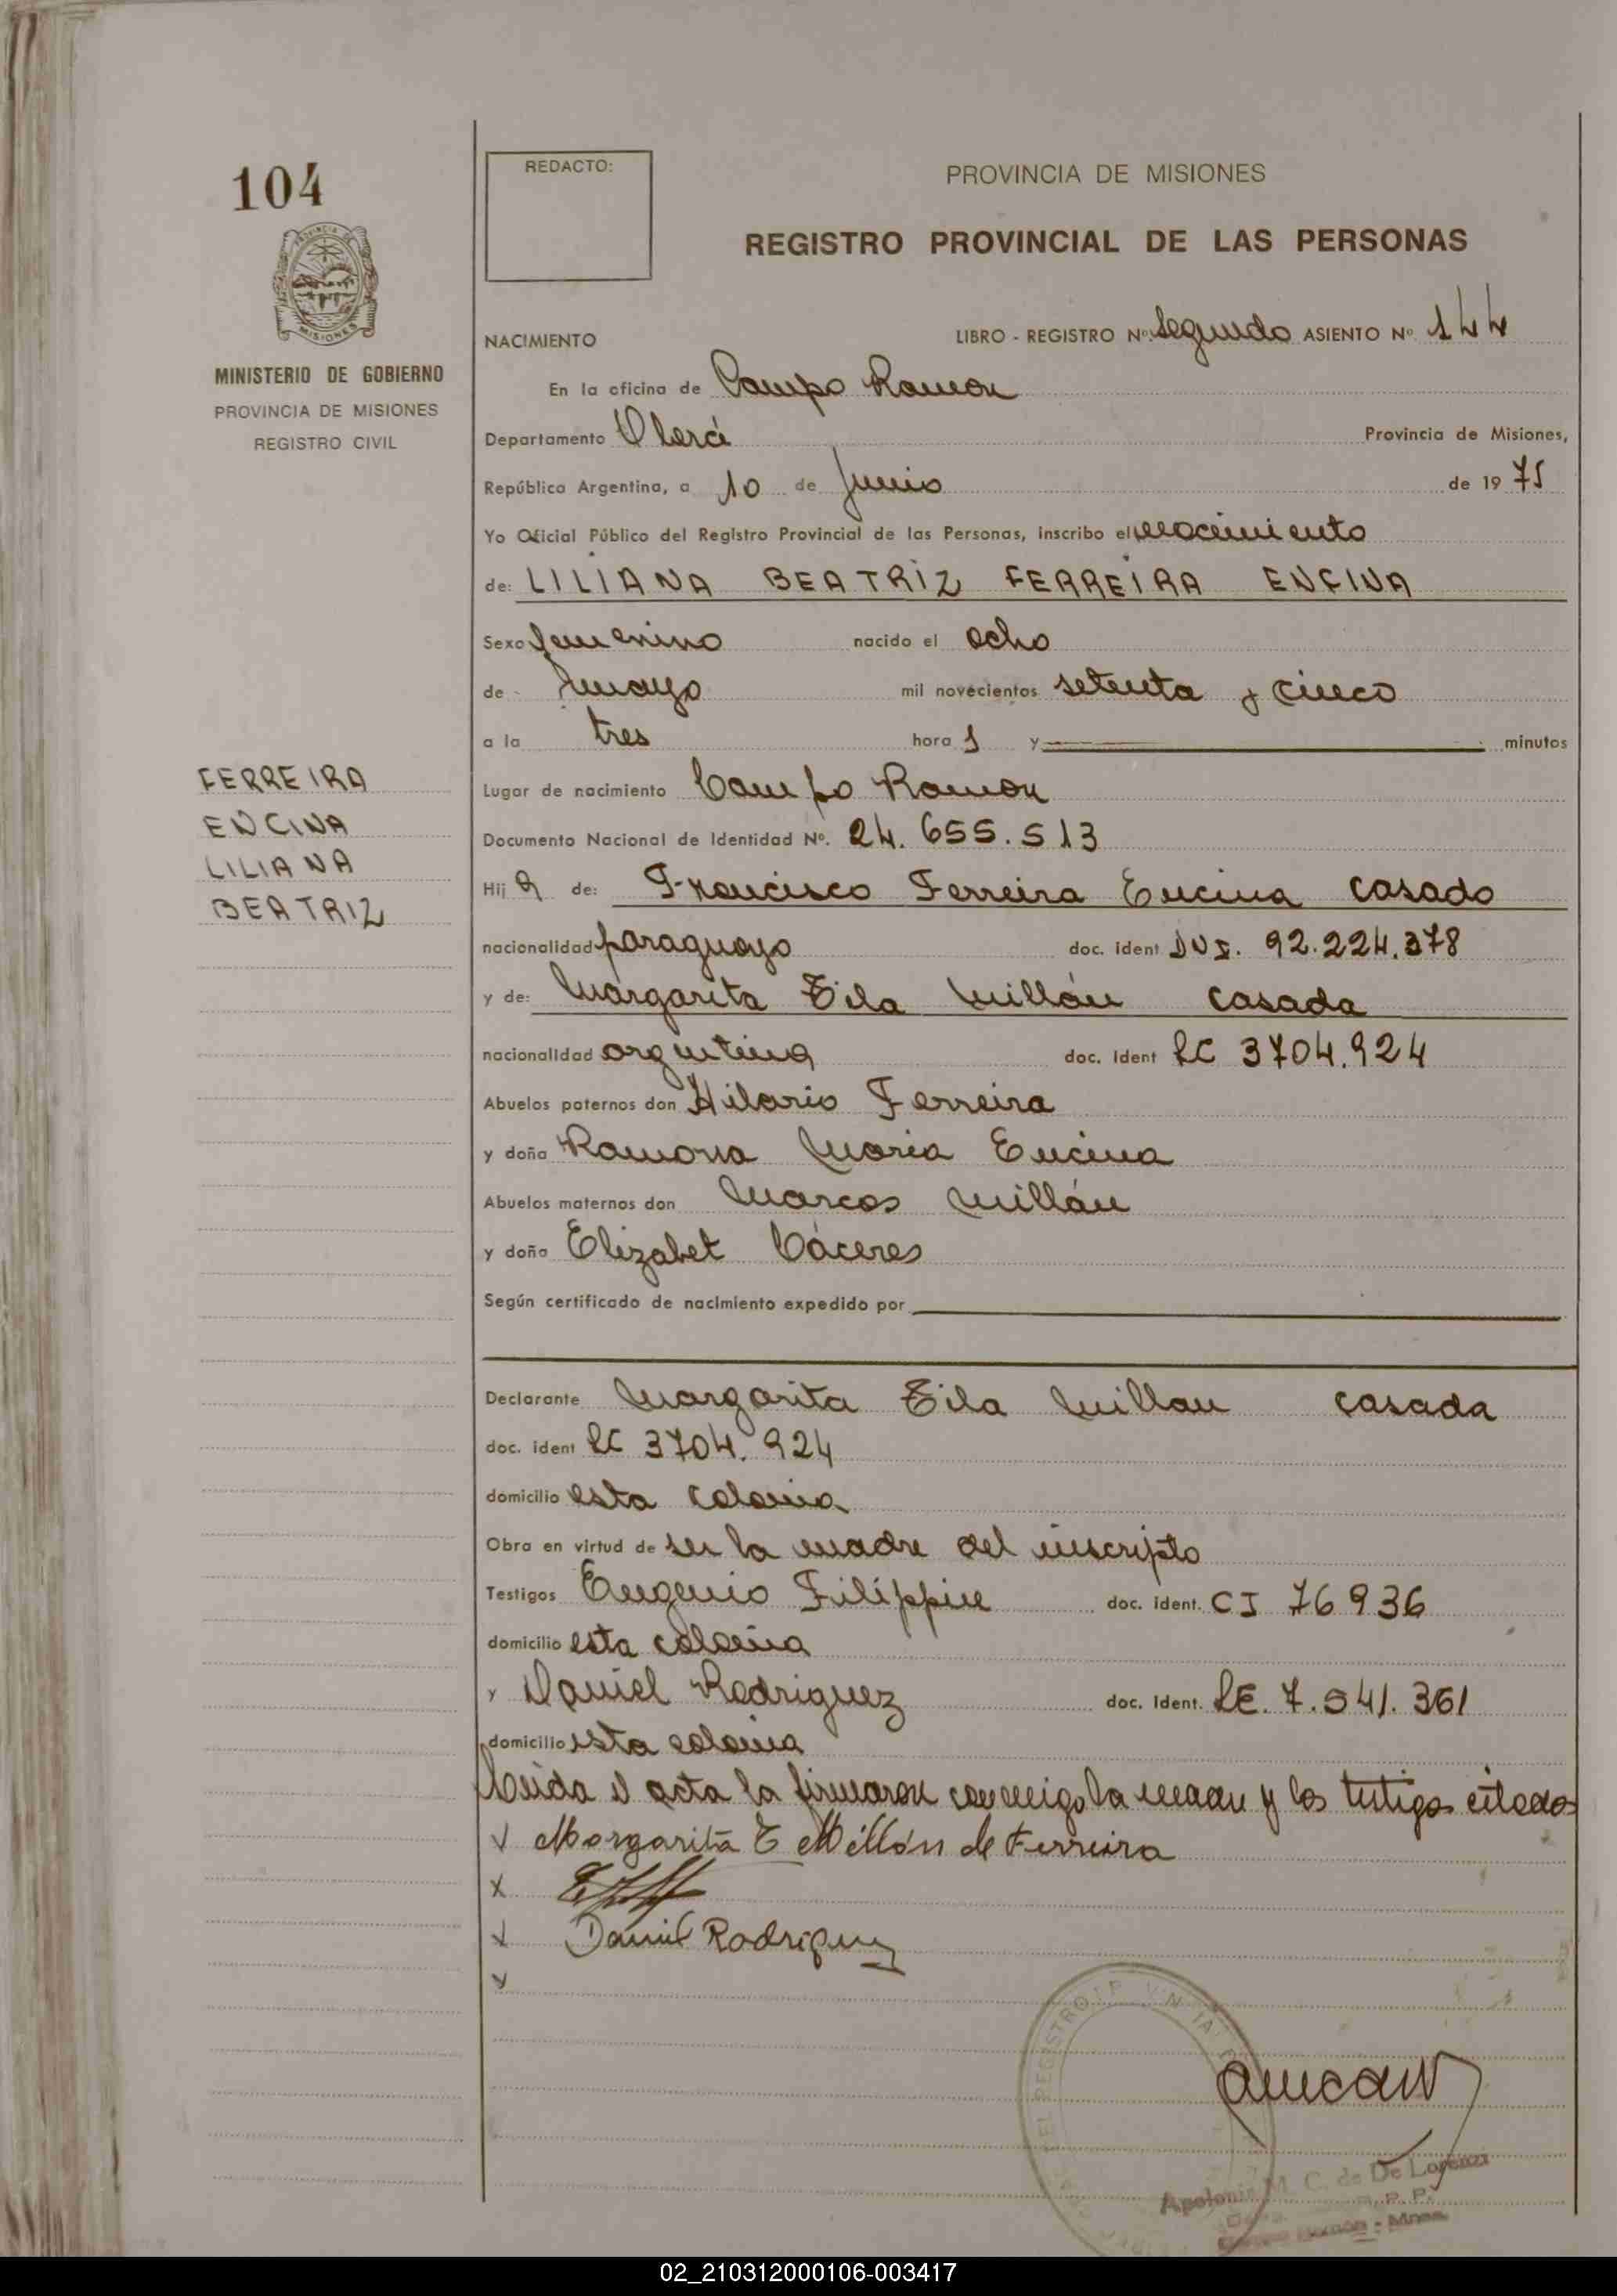 104
REDACTO:
PROVINCIA DE MISIONES
REGISTRO PROVINCIAL DE LAS PERSONAS
PROVINCIA DE
MISIONES
MINISTERIO DE GOBIERNO
PROVINCIA DE MISIONES
REGISTRO CIVIL
NACIMIENTO LIBRO - REGISTRO Nº. Segundo ASIENTO Nº. 144
En la oficina de Campo Ramon
Departamento Oberá Provincia de Misiones,
República Argentina, a 10 de Junio de 1975
Yo Oficial Público del Registro Provincial de las Personas, inscribo el nacimiento
de: LILIANA BEATRIZ FERREIRA ENCINA
Sexo femenino nacido el ocho
de mayo mil novecientos setenta y cinco
a la tres hora s y minutos
FERREIRA
ENCINA
LILIANA
BEATRIZ
Lugar de nacimiento Campo Ramon
Documento Nacional de Identidad Nº. 24.655.513
Hij a de: Francisco Ferreira Encina casado
nacionalidad paraguayo doc. ident DNI. 92.224.378
y de: Margarita Tila Millán casada
nacionalidad argentina doc. ident LC 3704.924
Abuelos paternos don Hilario Ferreira
y doña Ramona María Encina
Abuelos maternos don Marcos Millán
y doña Elizabet Cáceres
Según certificado de nacimiento expedido por
Declarante Margarita Tila Millan casada
doc. ident LC 3704.924
domicilio esta colonia
Obra en virtud de ser la madre del inscripto
Testigos Eugenio Filippin doc. ident. CI 76936
domicilio esta colonia
y Daniel Rodriguez doc. ident. LE. 7.541.361
domicilio esta colonia
Leida el acta la firmaron conmigo la madre y los testigos citados
Margarita T Millán de Ferreira
Daniel Rodriguez
Apolonia M. C. de De Lorenzi
02_210312000106-003417